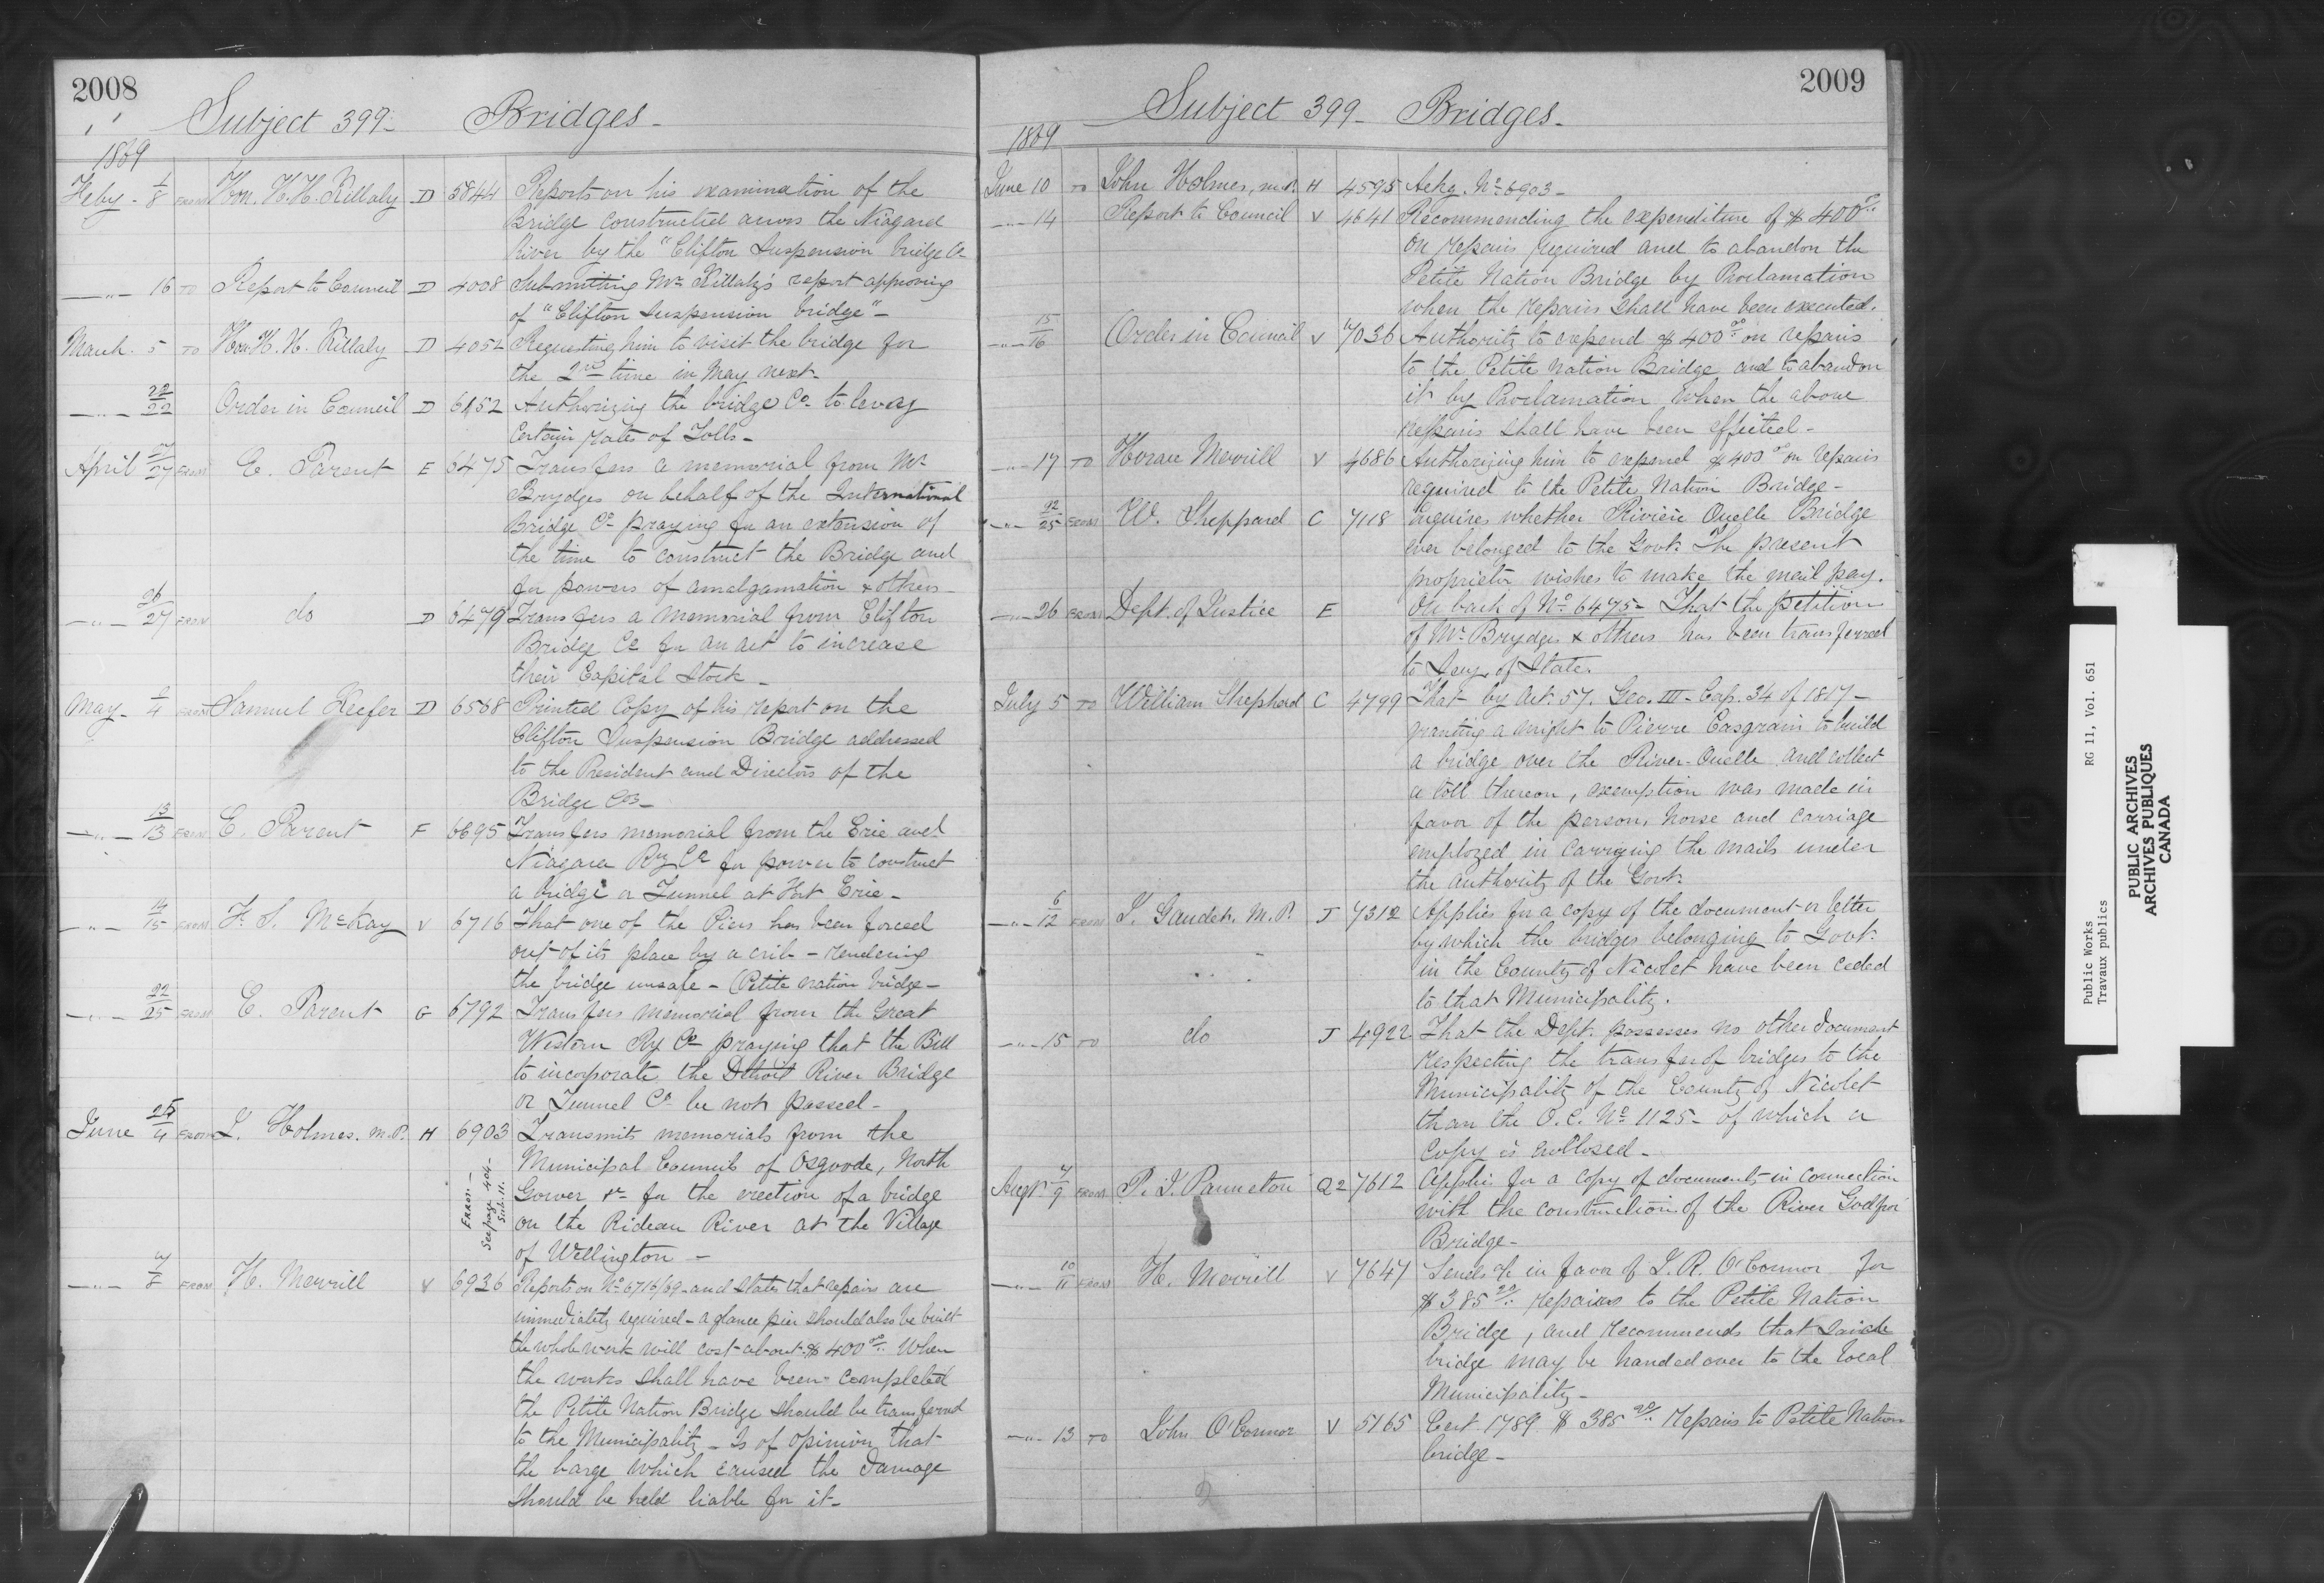 2008
Subject 399- Bridges-
1869
Feby - 1/8 FROM Hon. H.H. Killaly D 5844 Reports on his examination of the
Bridge constructed across the Niagara
River by the "Clifton Suspension bridge Co
—"— 16 TO Report to Council D 4008 Submitting Mr Killaly's report approving
of "Clifton Suspension bridge"-
March. 5 TO Hon. H. H. Killaly D 4052 Requesting him to visit the bridge for
the 2nd time in May next-
—"— 22/22 Order in Council D 6152 Authorizing the bridge Co. to levy
Certain rates of Tolls-
April 27 FROM E. Parent E 6475 Transfers a memorial from Mr
Brydges on behalf of the International
Bridge Co praying for an extension of
the time to construct the Bridge and
for powers of amalgamation & others-
—"— 26/27 FROM do D 6479 Transfers a memorial from Clifton
Bridge Co for an act to increase
their Capital Stock-
May- 4 FROM Samuel Keefer D 6568 Printed Copy of his report on the
Clifton Suspension Bridge addressed
to the President and Directors of the
Bridge Co-
—"— 13/13 FROM E. Parent F 6695 Transfers memorial from the Erie and
Niagara Ry Co for power to construct
a bridge or Tunnel at Fort Erie-
—"— 14/15 FROM F. S. McKay V 6716 That one of the Piers has been forced
out of its place by a crib - rendering
the bridge unsafe - (Petite nation bridge-
—"— 22/25 FROM E. Parent G 6792 Transfers memorial from the Great
Western Ry Co praying that the Bill
to incorporate the Detroit River Bridge
or Tunnel Co. be not passed-
June 4 FROM J. Holmes. M.P. H 6903 Transmits memorials from the
Municipal Councils of Osgoode, North
Gower &c for the erection of a bridge
on the Rideau River at the Village
of Wellington -
Error -
See page 404-
Sub. 11.
—"— 7/8 FROM H. Merrill V 6936 Reports on No 6716/69 - and states that repairs are
immediately required - a glance pier should also be built
the whole work will cost about $400.00 When
the works shall have been completed
the Petite Nation Bridge should be transferred
to the Municipality - Is of opinion that
the barge which caused the damage
should be held liable for it-
2009
Subject 399- Bridges-
1869
June 10 TO John Holmes, M.P. H 4595 Ackg. No 6903-
—"— 14 Report to Council V 4641 Recommending the expenditure of $400.00
on repairs required and to abandon the
Petite Nation Bridge by Proclamation
when the repairs shall have been executed.
—"— 15/16 Order in Council V 7036 Authority to expend $400.00 on repairs
to the Petite Nation Bridge and to abandon
it by Proclamation when the above
repairs shall have been effected-
—"— 17 TO Horace Merrill V 4686 Authorizing him to expend $400.00 on repairs
required to the Petite Nation Bridge-
—"— 22/25 FROM W. Sheppard C 7118 inquires whether Rivière Ouelle Bridge
ever belonged to the Govt. The present
proprietor wishes to make the mail pay.
—"— 26 FROM Dept. of Justice E On back of No 6475- That the petition
of Mr Brydges & others has been transferred
to Secy of State.
July 5 TO William Shepherd C 4799 That by Act. 57. Geo. III - Cap. 34 of 1817-
granting a right to Pierre Casgrain to build
a bridge over the River-Ouelle and collect
a toll thereon, exemption was made in
favor of the person, horse and carriage
employed in carrying the mails under
the authority of the Govt.
—"— 6/12 FROM J. Gaudet. M.P. J 7312 Applies for a copy of the document or letter
by which the bridges belonging to Govt.
in the County of Nicolet have been ceded
to that Municipality.
—"— 15 TO do J 4922 That the Dept. possesses no other document
respecting the transfer of bridges to the
Municipality of the County of Nicolet
than the O.C. No 1125- of which a
copy is enclosed-
Augt. 7/9 FROM P. J. Panneton Q2 7612 Applies for a copy of documents in connection
with the construction of the River Godfroi
Bridge-
—"— 10/11 FROM H. Merrill V 7647 Sends a/c in favor of J. R. O'Connor for
$385.20 repairs to the Petite Nation
Bridge, and recommends that said
bridge may be handed over to the local
Municipality-
—"— 13 TO John O'Connor V 5165 Cert. 1789 $385.20 Repairs to Petite Nation
bridge-
Public Works RG 11, Vol. 651
Travaux publics
PUBLIC ARCHIVES
ARCHIVES PUBLIQUES
CANADA